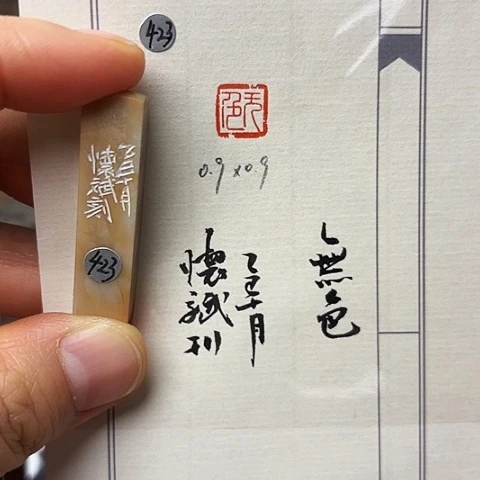 423
无色
0.9×0.9
無色
乙巳十月
懷斌刊
乙巳十月
懷斌刻
423